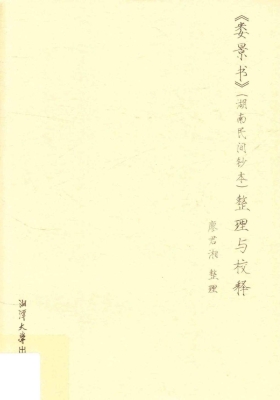 《娄景书》(湖南民间钞本)整理与校释
廖君湘 整理
湘潭大学出